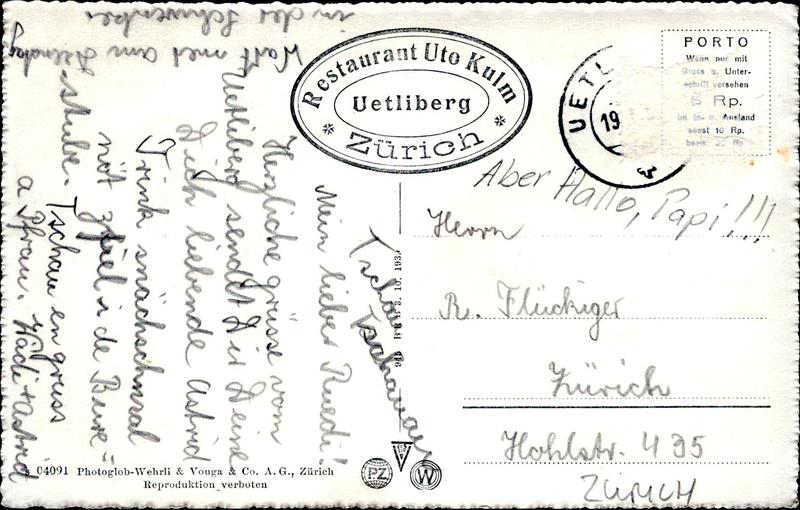 Restaurant Uto Kulm
Uetliberg
Zürich
PORTO
Wenn nur mit
Gruss u. Unter-
schrift versehen
5 Rp.
im In- u. Ausland
sonst 10 Rp.
UETL
19
Aber Hallo, Papi!!!
Herrn
R. Flückiger
Zürich
Hohlstr. 495
ZÜRICH
Mein lieber Ruedi!
Herzliche grüsse vom
Uetliberg sendet Dir Deine
Dich liebende Astrid
Trink snächschmal
nöt zfiel i de Bure=
stube. Tschau en gruss
a Pfrau. Hädi + Astrid
Wart mer am
in der
Tschau
PZ
W
04091 Photoglob-Wehrli & Vouga & Co. A. G., Zürich
Reproduktion verboten